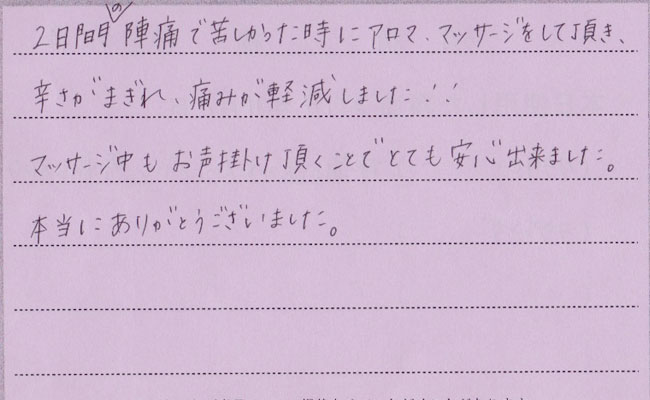 2日間の陣痛で苦しかった時にアロマ、マッサージをして頂き、
辛さがまぎれ、痛みが軽減しました!!
マッサージ中もお声掛け頂くことでとても安心出来ました。
本当にありがとうございました。